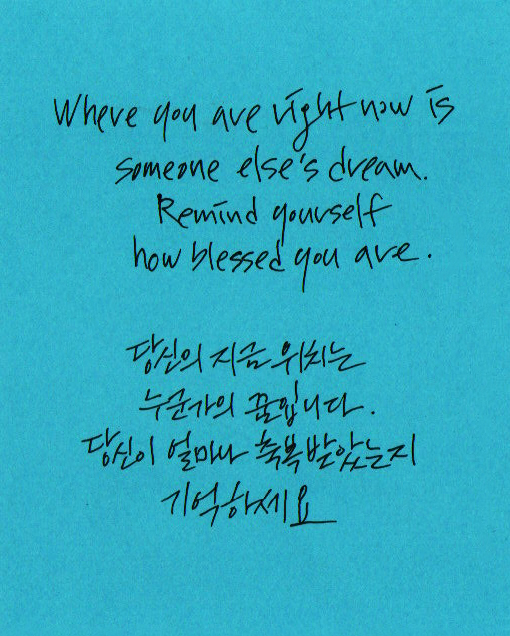 Where you are right now is
someone else's dream.
Remind yourself
how blessed you are.
당신의 지금 위치는
누군가의 꿈입니다.
당신이 얼마나 축복받았는지
기억하세요